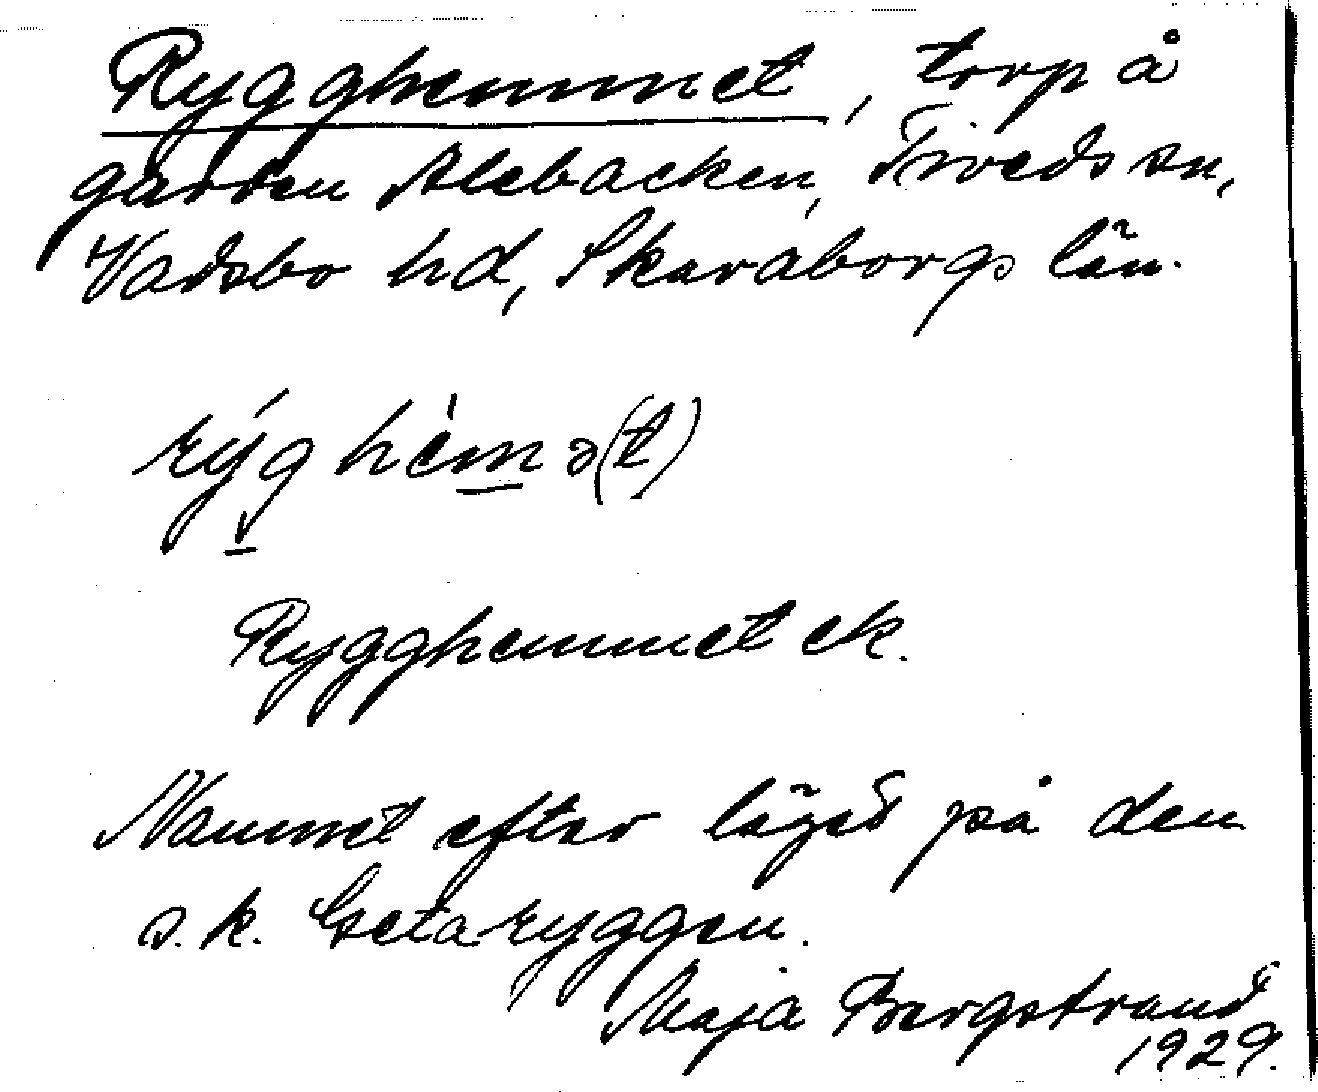 Rygghemmet, torp å
gården Alebacken, Tiveds sn,
Vadsbo hd, Skaraborgs län.
rýg hèm ə(t)
Rygghemmet ek.
Namnet efter läget på den
s.k. Getaryggen.
Maja Bergstrand
1929.